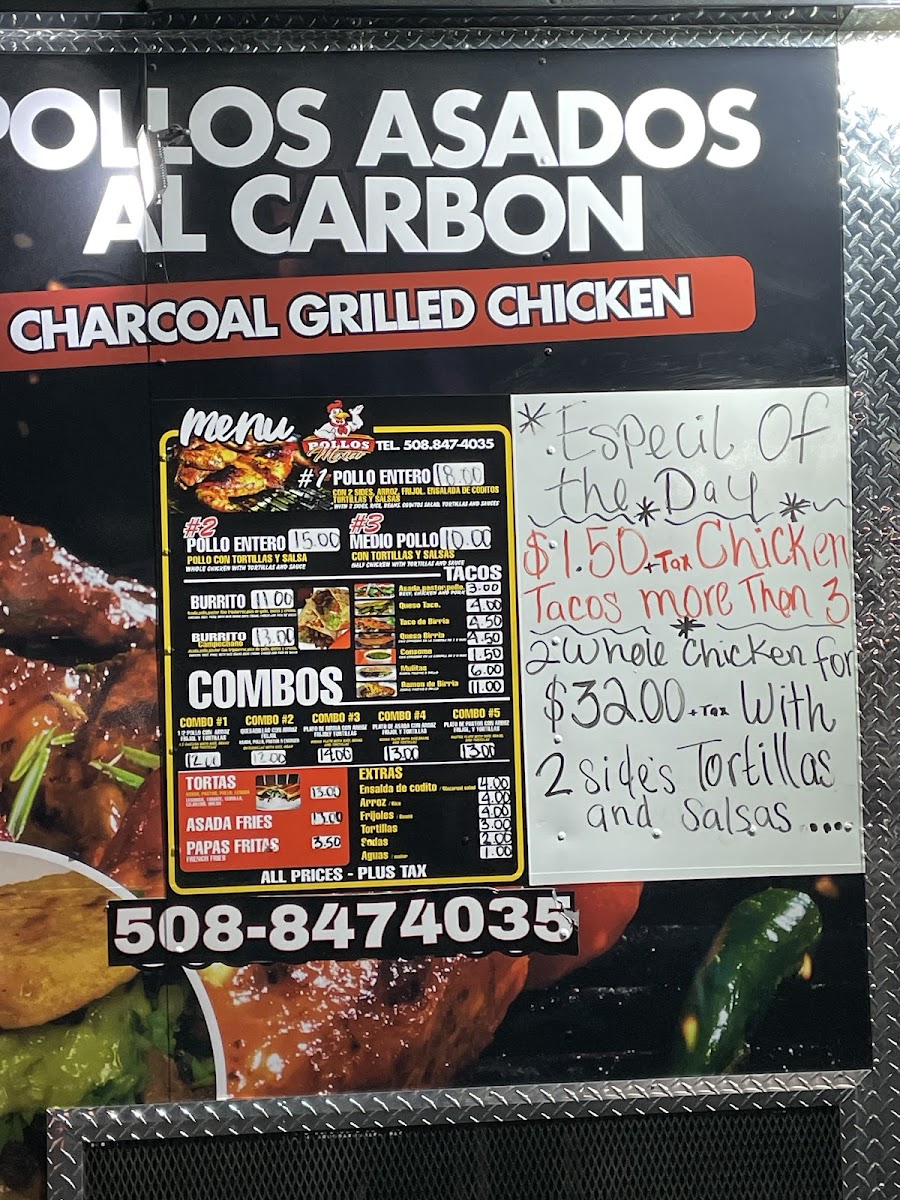 POLLOS ASADOS
AL CARBON
CHARCOAL GRILLED CHICKEN
Menu
POLLOS
TEL. 508.847-4035
#1 POLLO ENTERO 18.00
CON 2 SIDES, ARROZ, FRIJOL, ENSALADA DE CODITOS
TORTILLAS Y SALSAS
WITH 2 SIDES, RICE, BEANS, CODITOS SALAD, TORTILLAS AND SAUCES
#2
POLLO ENTERO 15.00
POLLO CON TORTILLAS Y SALSA
WHOLE CHICKEN WITH TORTILLAS AND SAUCE
#3
MEDIO POLLO 10.00
CON TORTILLAS Y SALSAS
HALF CHICKEN WITH TORTILLAS AND SAUCE
TACOS
Asada, pastor, pollo 3.00
BEEF, CHICKEN AND PORK
Queso Taco. 4.00
Taco de Birria 4.50
Quesa Birria 4.50
Consome 1.50
Mulitas 6.00
Ramen de Birria 11.00
BURRITO 11.00
BURRITO 13.00
Campechano
COMBOS
COMBO #1
1/2 POLLO CON ARROZ
FRIJOL Y TORTILLAS
12.00
COMBO #2
QUESADILLAS CON ARROZ
FRIJOL
12.00
COMBO #3
PLATO DE BIRRIA CON ARROZ
FRIJOL Y TORTILLAS
14.00
COMBO #4
PLATO DE ASADA CON ARROZ
FRIJOL Y TORTILLAS
13.00
COMBO #5
PLATO DE PASTOR CON ARROZ
FRIJOL, Y TORTILLAS
13.00
TORTAS 13.00
ASADA FRIES 13.00
PAPAS FRITAS 3.50
FRENCH FRIES
EXTRAS
Ensalda de codito / Macaroni salad 4.00
Arroz / Rice 4.00
Frijoles / Beans 4.00
Tortillas 3.00
Sodas 2.00
Aguas / water 1.00
ALL PRICES - PLUS TAX
508-8474035
* Especil Of
the * Day *
$1.50 + Tax Chicken
Tacos more Then 3
*
2 Whole Chicken for
$32.00 + Tax With
2 side's Tortillas
and salsas ....